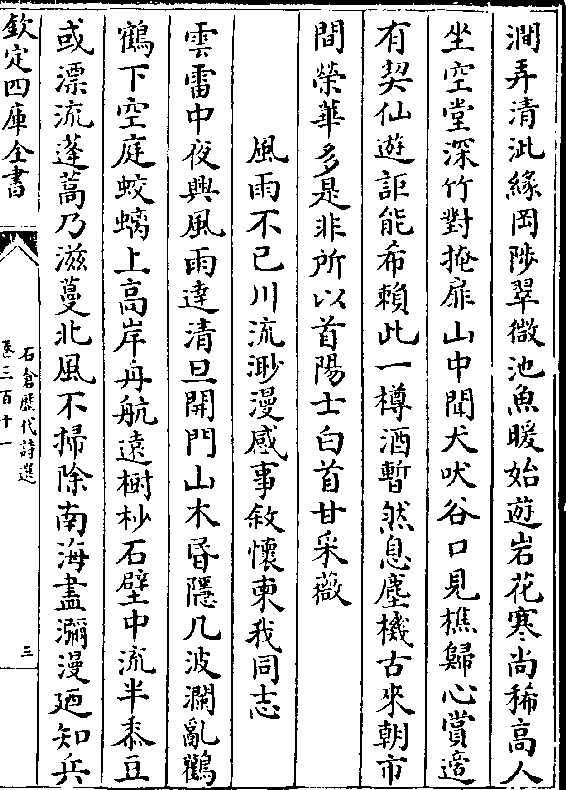 澗弄清泚緣岡陟翠微池魚暖始遊岩花寒尚稀高人
坐空堂深竹對掩扉山中聞犬吠谷口見樵歸心賞適
有契仙遊詎能希賴此一樽酒暫然息塵機古來朝市
間榮華多是非所以首陽士白首甘采薇
風雨不已川流渺漫感事敘懷柬我同志
雲雷中夜興風雨達清旦開門山木昏隱几波瀾亂鸛
鶴下空庭蛟螭上高岸舟航遠樹杪石壁中流半黍豆
或漂流蓬蒿乃滋蔓北風不掃除南海盡瀰漫廼知兵
欽定四庫全書
石倉歷代詩選
卷三百十一
三